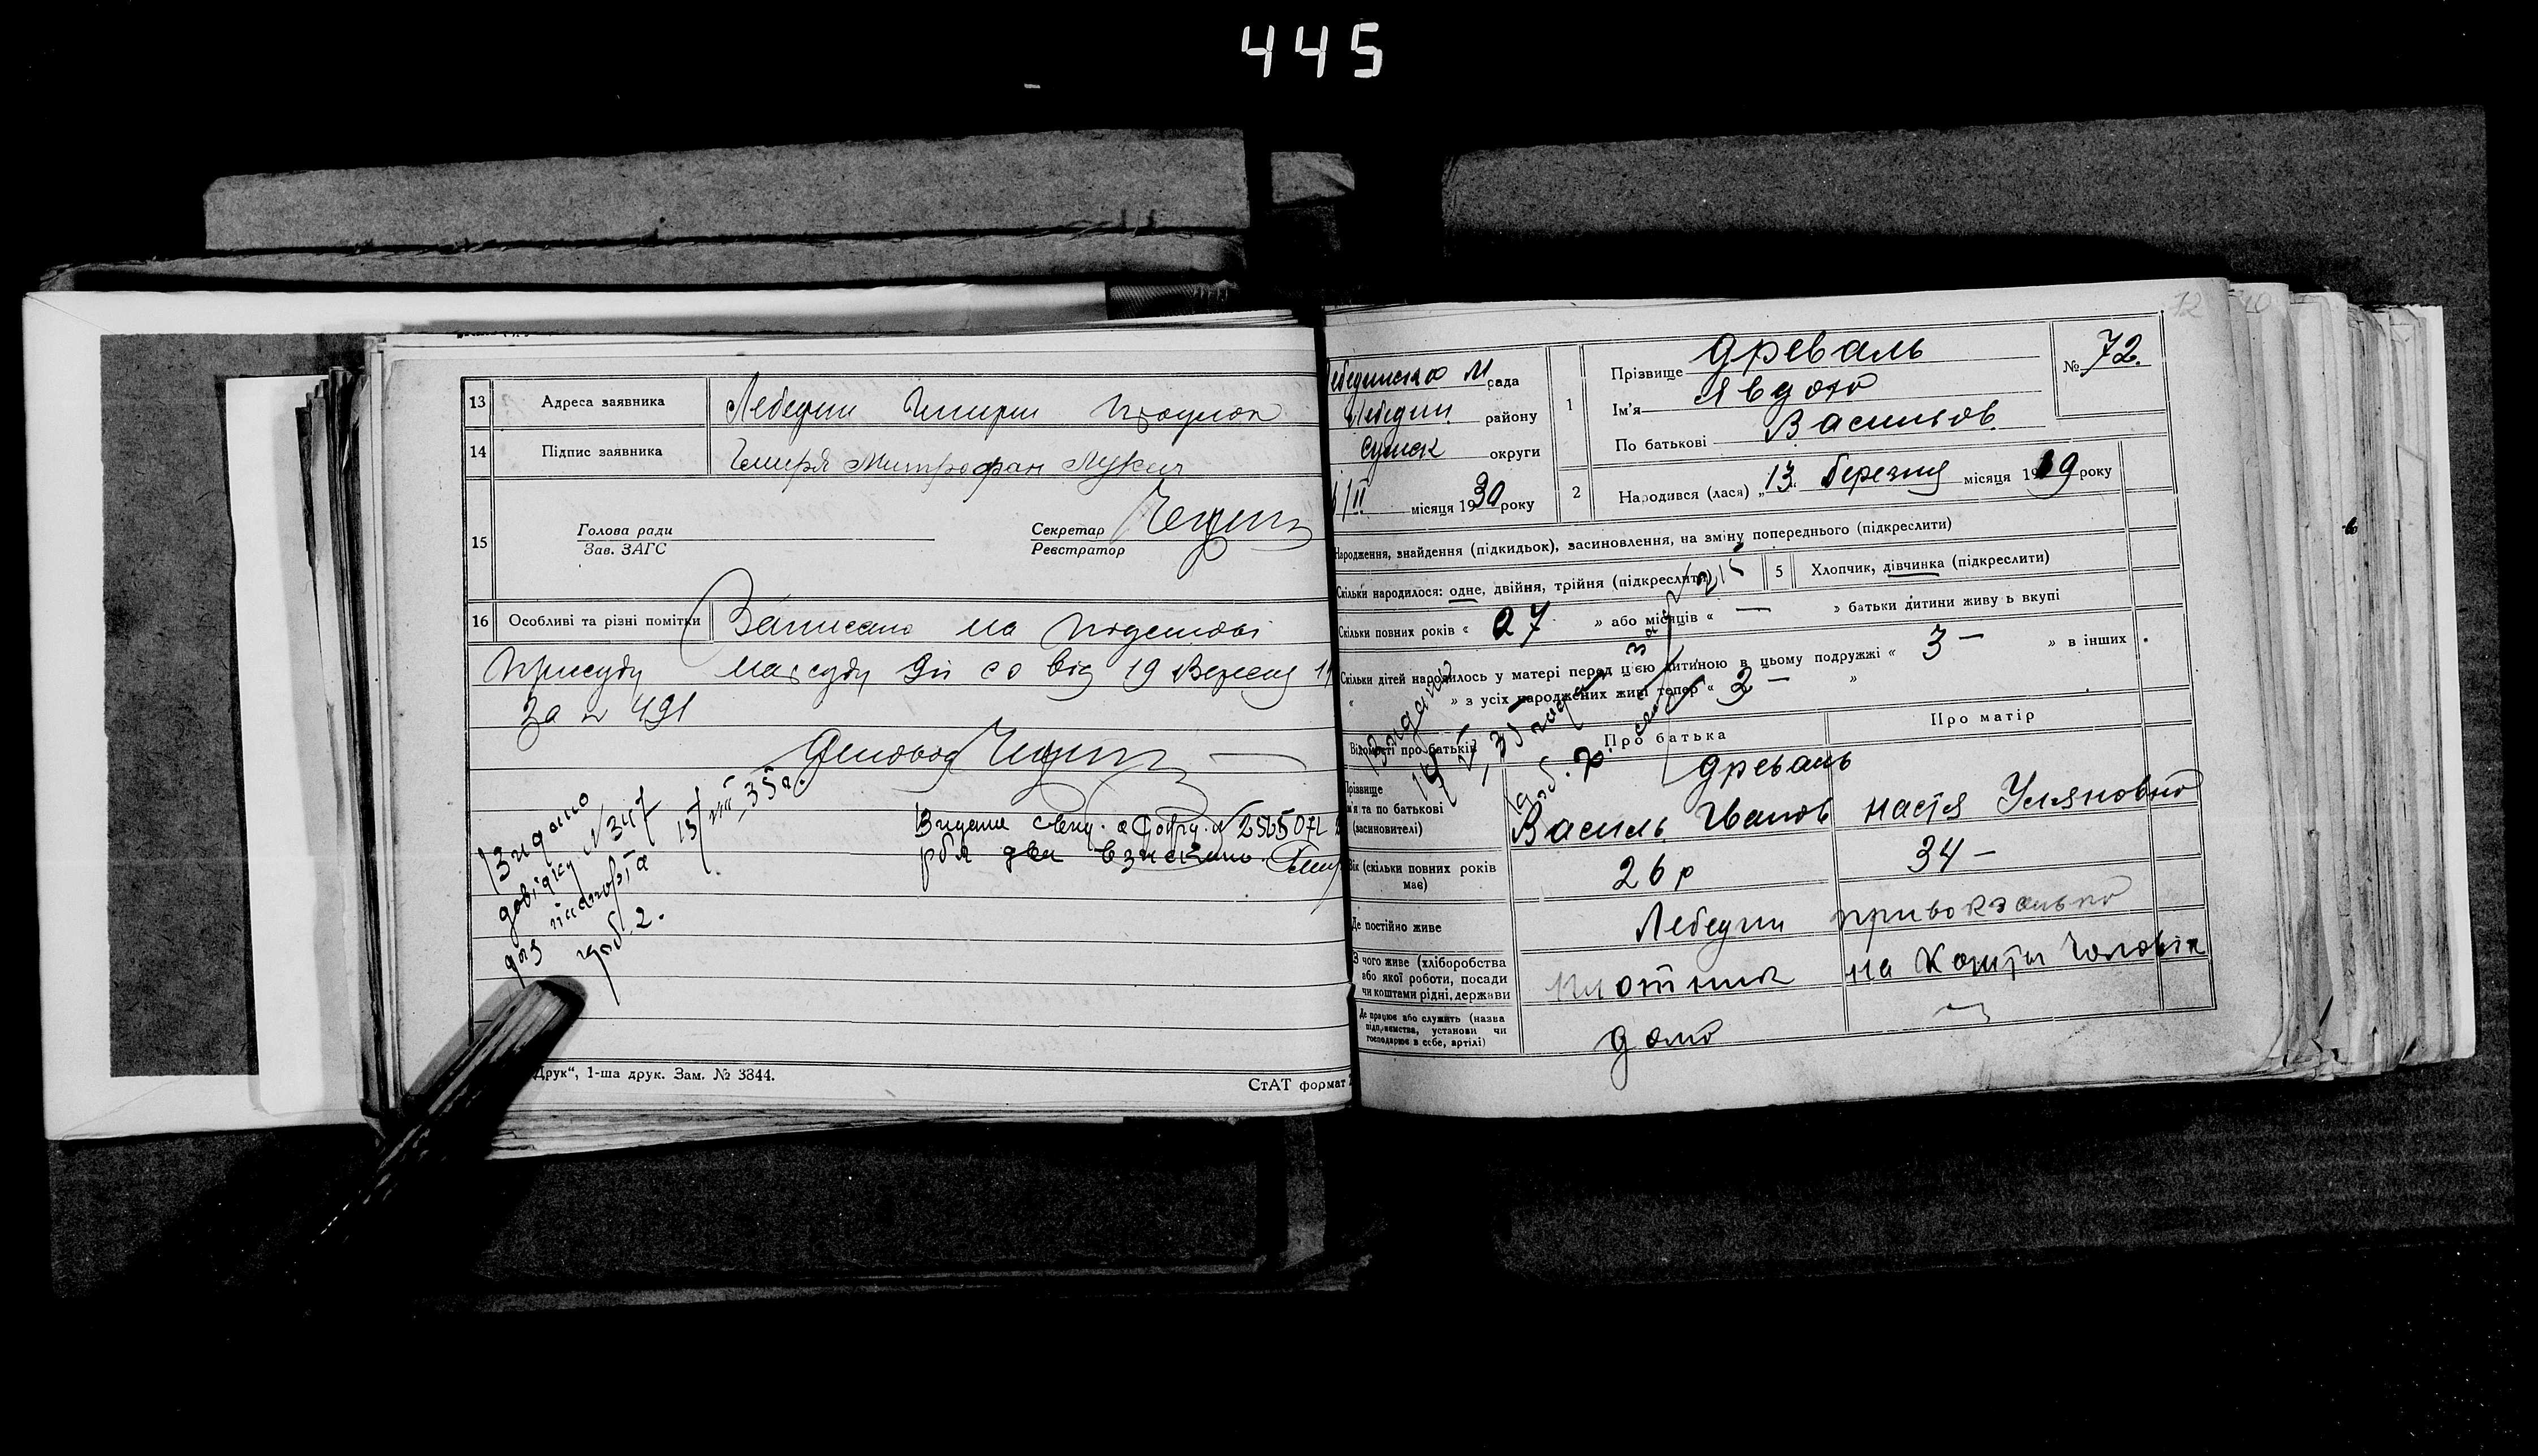 445
13 Адреса заявника Лебедин
14 Підпис заявника Чмиря Митрофан Лукич
15 Голова ради
Зав. ЗАГС
Секретар
Реєстратор
16 Особливі та різні помітки Записано на підставі
присуду нарсуду від 19 Вересня
За № 491
Діловод
Видано
довідку № 347
для паспорта
15/VIII 35 г.
Друк“, 1-ша друк. Зам. № 3844.
СтАТ формат
12
М рада
Лебедин району
Сумск округи
місяця 1930 року
1 Прізвище Древаль
Ім'я Явдохо
По батькові Васильов.
№ 72.
2 Народився (лася) „13“ березня місяця 19 року
Народження, знайдення (підкидьок), засиновлення, на зміну попереднього (підкреслити)
Скільки народилося: одне, двійня, трійня (підкреслити)
5 Хлопчик, дівчинка (підкреслити)
Скільки повних років « 27 » або місяців « — » батьки дитини живуть вкупі
Скільки дітей народилось у матері перед цією дитиною в цьому подружжі « 3 — » в інших
« » з усіх народжених живі тепер « 3 — »
Видано
Відомості про батьків
Про батька
Про матір
Прізвище
ім'я та по батькові
(засновителі)
Древаль
Василь Іванов
Настя Уляновно
Вік (скільки повних років має)
26 р
34 —
Де постійно живе
Лебедин привокзально
З чого живе (хліборобства
або якої роботи, посади
чи коштами рідні, держави
плотник
на кошти чоловік
Де працює або служить (назва
підприємства, установи чи
господарює в себе, артілі)
дома